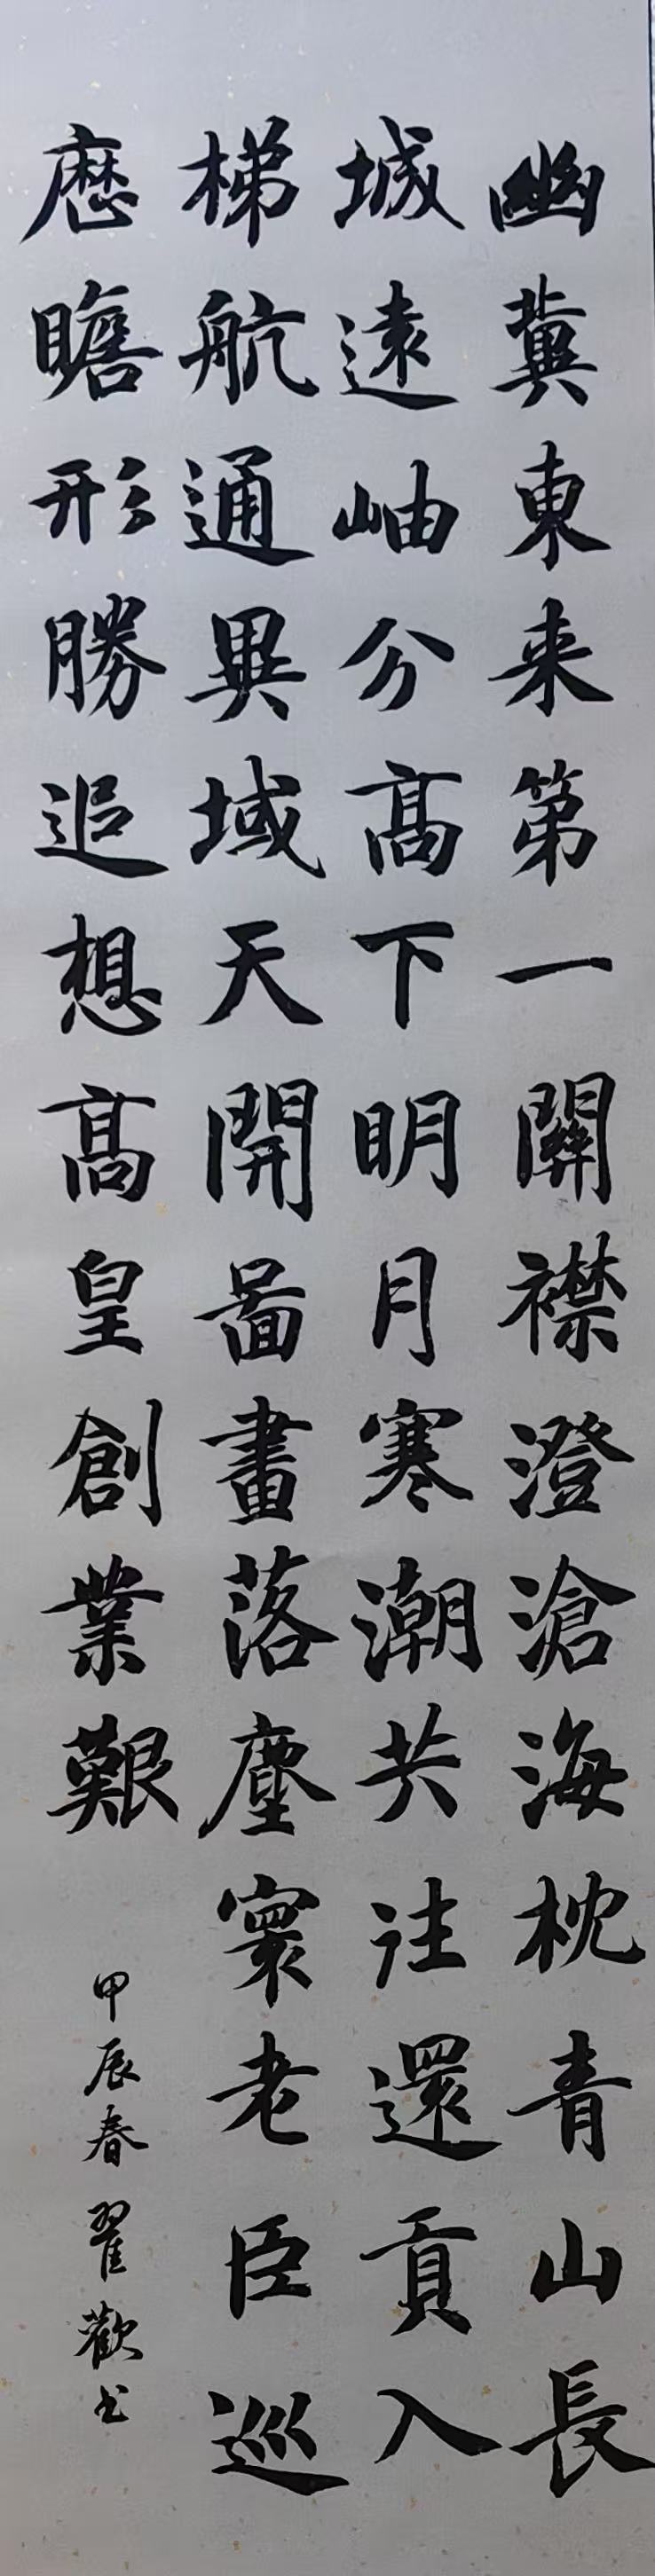 幽冀東来第一關襟澄滄海枕青山長
城遠岫分高下明月寒潮共往還貢入
梯航通異域天開啚畫落塵寰老臣巡
歷瞻形勝追想高皇創業艱
甲辰春翟歡书